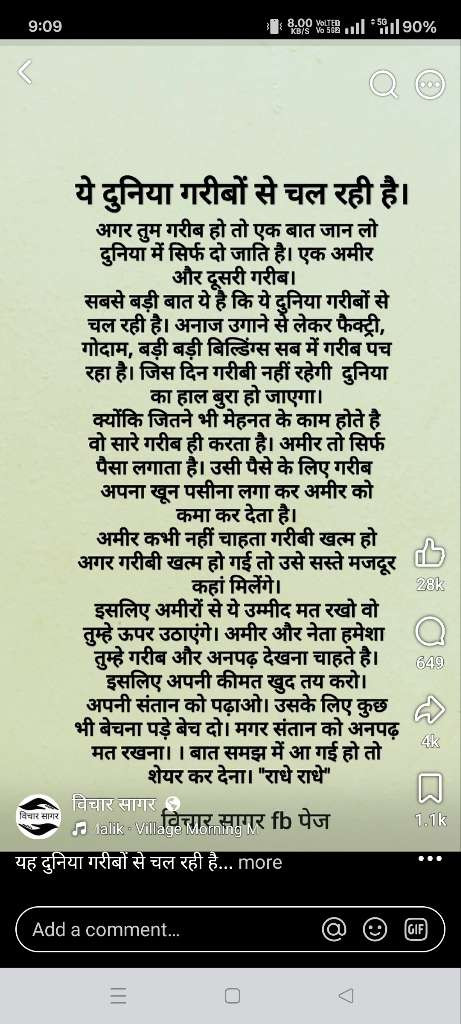 9:09
8.00 KB/S
VoLTED
Vo 5G
5G
90%
ये दुनिया गरीबों से चल रही है।
अगर तुम गरीब हो तो एक बात जान लो
दुनिया में सिर्फ दो जाति है। एक अमीर
और दूसरी गरीब।
सबसे बड़ी बात ये है कि ये दुनिया गरीबों से
चल रही है। अनाज उगाने से लेकर फैक्ट्री,
गोदाम, बड़ी बड़ी बिल्डिंग्स सब में गरीब पच
रहा है। जिस दिन गरीबी नहीं रहेगी दुनिया
का हाल बुरा हो जाएगा।
क्योंकि जितने भी मेहनत के काम होते है
वो सारे गरीब ही करता है। अमीर तो सिर्फ
पैसा लगाता है। उसी पैसे के लिए गरीब
अपना खून पसीना लगा कर अमीर को
कमा कर देता है।
अमीर कभी नहीं चाहता गरीबी खत्म हो
अगर गरीबी खत्म हो गई तो उसे सस्ते मजदूर
कहां मिलेंगे।
इसलिए अमीरों से ये उम्मीद मत रखो वो
तुम्हे ऊपर उठाएंगे। अमीर और नेता हमेशा
तुम्हे गरीब और अनपढ़ देखना चाहते है।
इसलिए अपनी कीमत खुद तय करो।
अपनी संतान को पढ़ाओ। उसके लिए कुछ
भी बेचना पड़े बेच दो। मगर संतान को अनपढ़
मत रखना। । बात समझ में आ गई हो तो
शेयर कर देना। "राधे राधे"
28k
649
4k
1.1k
विचार सागर
विचार सागर
विचार सागर fb पेज
Malik · Village Morning M
यह दुनिया गरीबों से चल रही है... more
Add a comment...
GIF